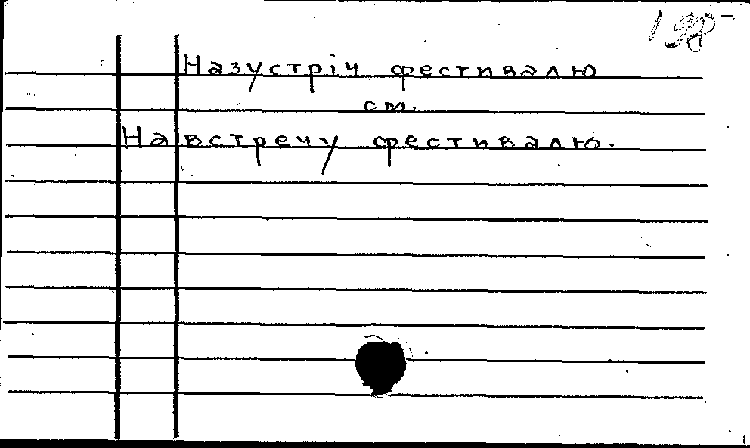 Назустріч фестивалю
см.
На встречу фестивалю.